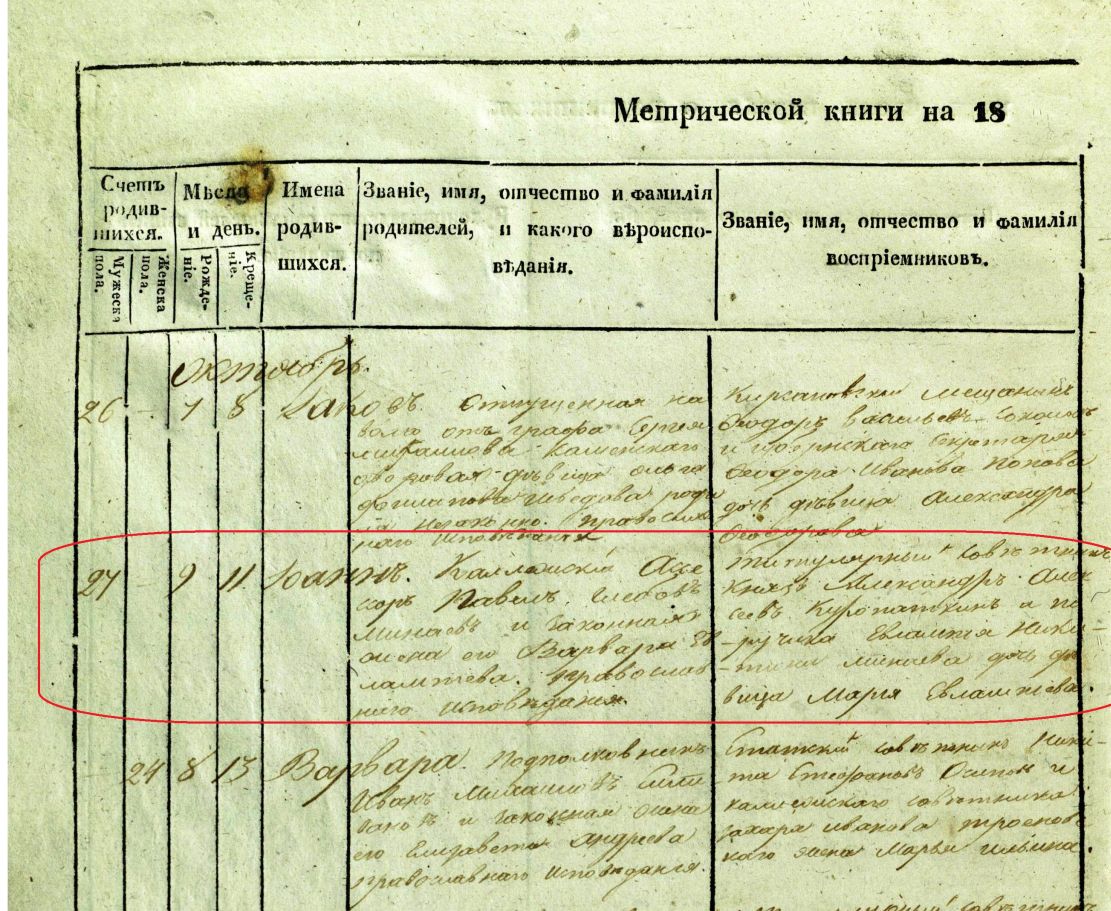 Метрической книги на 18
Счетъ родив-шихся.
Мужеска пола.
Женска пола.
и день.
Рожде-ніе.
Креще-ніе.
Имена родив-шихся.
Званіе, имя, отчество и фамилія
родителей, и какого вѣроиспо-
вѣданія.
Званіе, имя, отчество и фамилія
воспріемниковъ.
октобрь.
26 - 7 8 Іаковъ. Отпущенная на
волю отъ графа Сергея
Каменскаго
дворовая дѣвица
незаконно. православ
наго исповѣданія
мещанинъ
Ѳеодоръ Васильевъ
и губернскаго секретаря
Ѳеодора Иванова Попова
дочь дѣвица Александра
Ѳеодорова
27 - 9 11 Іоаннъ. Асе
соръ Павелъ Глебовъ
Минаевъ и законная
жена его Варвара Ев
лампіева. православ
наго исповѣданія.
титулярный совѣтникъ
Князь Александръ Алек
сеевъ Куропаткинъ и по
-ручика Евлампія Ники
-тина Минаева дочь дѣ
вица Марья Евлампіева.
- 24 8 13 Варвара. Подполковникъ
Иванъ
и законная жена
его Елизавета Андреева
православнаго исповѣданія.
статскій совѣтникъ Ники
та Стефановъ Осипов и
совѣтника
Захара Иванова
каго жена Марья Ильина.